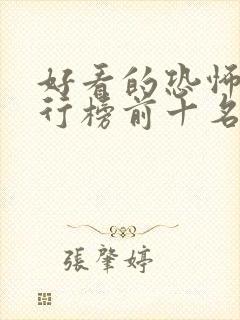 好看的恐怖
行榜前十名
張肇婷